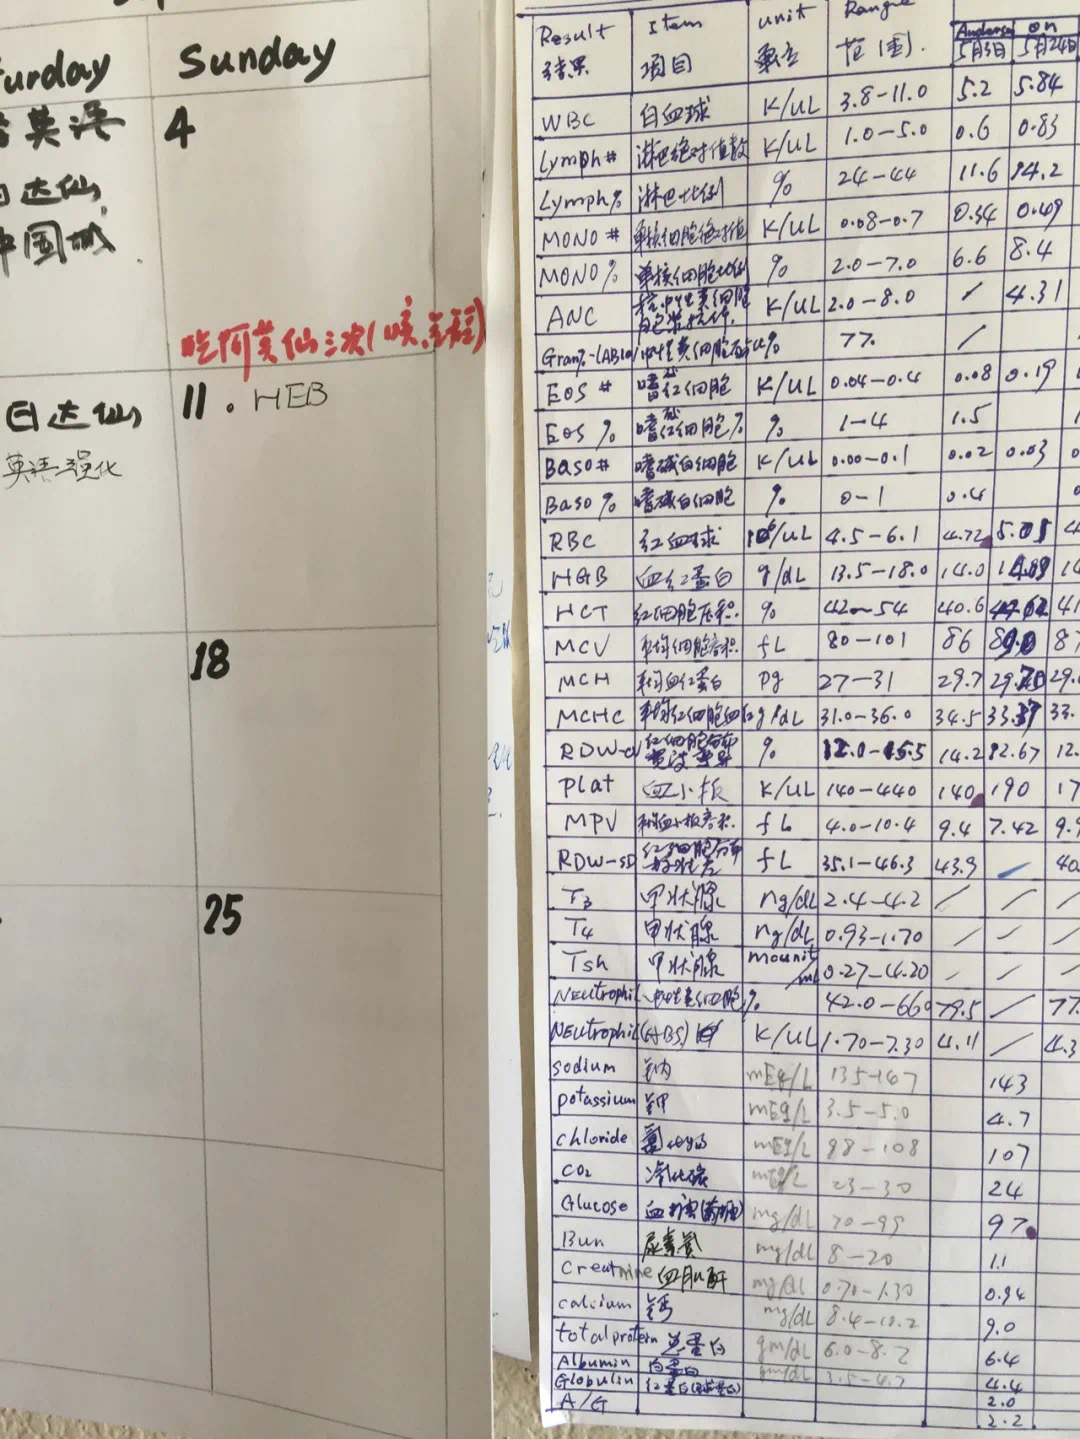 urday
Sunday
英语
4
日达仙
中国城
吃阿莫仙三次(咳
日达仙
11. HEB
英语强化
18
25
Result Item unit Range Anderson
结果 项目 单位 范围. 5月3日 5月24日
WBC 白血球 K/UL 3.8-11.0 5.2 5.84
Lymph# 淋巴绝对值数 K/UL 1.0-5.0 0.6 0.83
Lymph% 淋巴比例 % 24-44 11.6 14.2
MONO# 单核细胞绝对值 K/UL 0.08-0.7 0.34 0.49
MONO% 单核细胞比例 % 2.0-7.0 6.6 8.4
ANC K/UL 2.0-8.0 / 4.31
Gran%-(AB10) % 77. /
EOS # 嗜酸红细胞 K/UL 0.04-0.4 0.08 0.19
EOS % 嗜酸红细胞% % 1-4 1.5
Baso# 嗜碱白细胞 K/UL 0.00-0.1 0.02 0.03
Baso% 嗜碱白细胞 % 0-1 0.4
RBC 红血球 10⁶/UL 4.5-6.1 4.72 5.05 4
HGB 血红蛋白 g/dL 13.5-18.0 14.0 14
HCT 红细胞压积. % 42-54 40.6 41
MCV 平均细胞容积. fL 80-101 86 89.0 8
MCH 平均血红蛋白 pg 27-31 29.7 29.
MCHC 平均红细胞血红 g/dL 31.0-36.0 34.5 33.37 33.
RDW-CV 红细胞分布 % 12.0-15.5 14.2 12.67 12.
Plat 血小板 K/UL 140-440 140 190 17
MPV 平均血小板容积. fL 4.0-10.4 9.4 7.42 9.9
RDW-SD 红细胞分布 fL 35.1-46.3 43.9 / 40
T3 甲状腺 ng/dL 2.4-4.2 / / /
T4 甲状腺 ng/dL 0.93-1.70 / / /
Tsh 甲状腺 mounit/mL 0.27-4.20 / / /
Neutrophil 中性粒细胞 % 42.0-66.0 79.5 / 77.
Neutrophil(ABS) K/UL 1.70-7.30 4.11 / 4.3
sodium 钠 mEq/L 135-147 143
potassium 钾 mEq/L 3.5-5.0 4.7
chloride mEq/L 98-108 107
CO2 mEq/L 23-30 24
Glucose 血糖(葡糖) mg/dL 70-99 97
Bun 尿素氮 mg/dL 8-20 11
Creatinine 血肌酐 mg/dL 0.70-1.30 0.94
calcium 钙 mg/dL 8.4-10.2 9.0
total protein 总蛋白 gm/dL 6.0-8.2 6.4
Albumin 白蛋白 gm/dL 3.5-4.7 4.4
Globulin 2.0
A/G 2.2